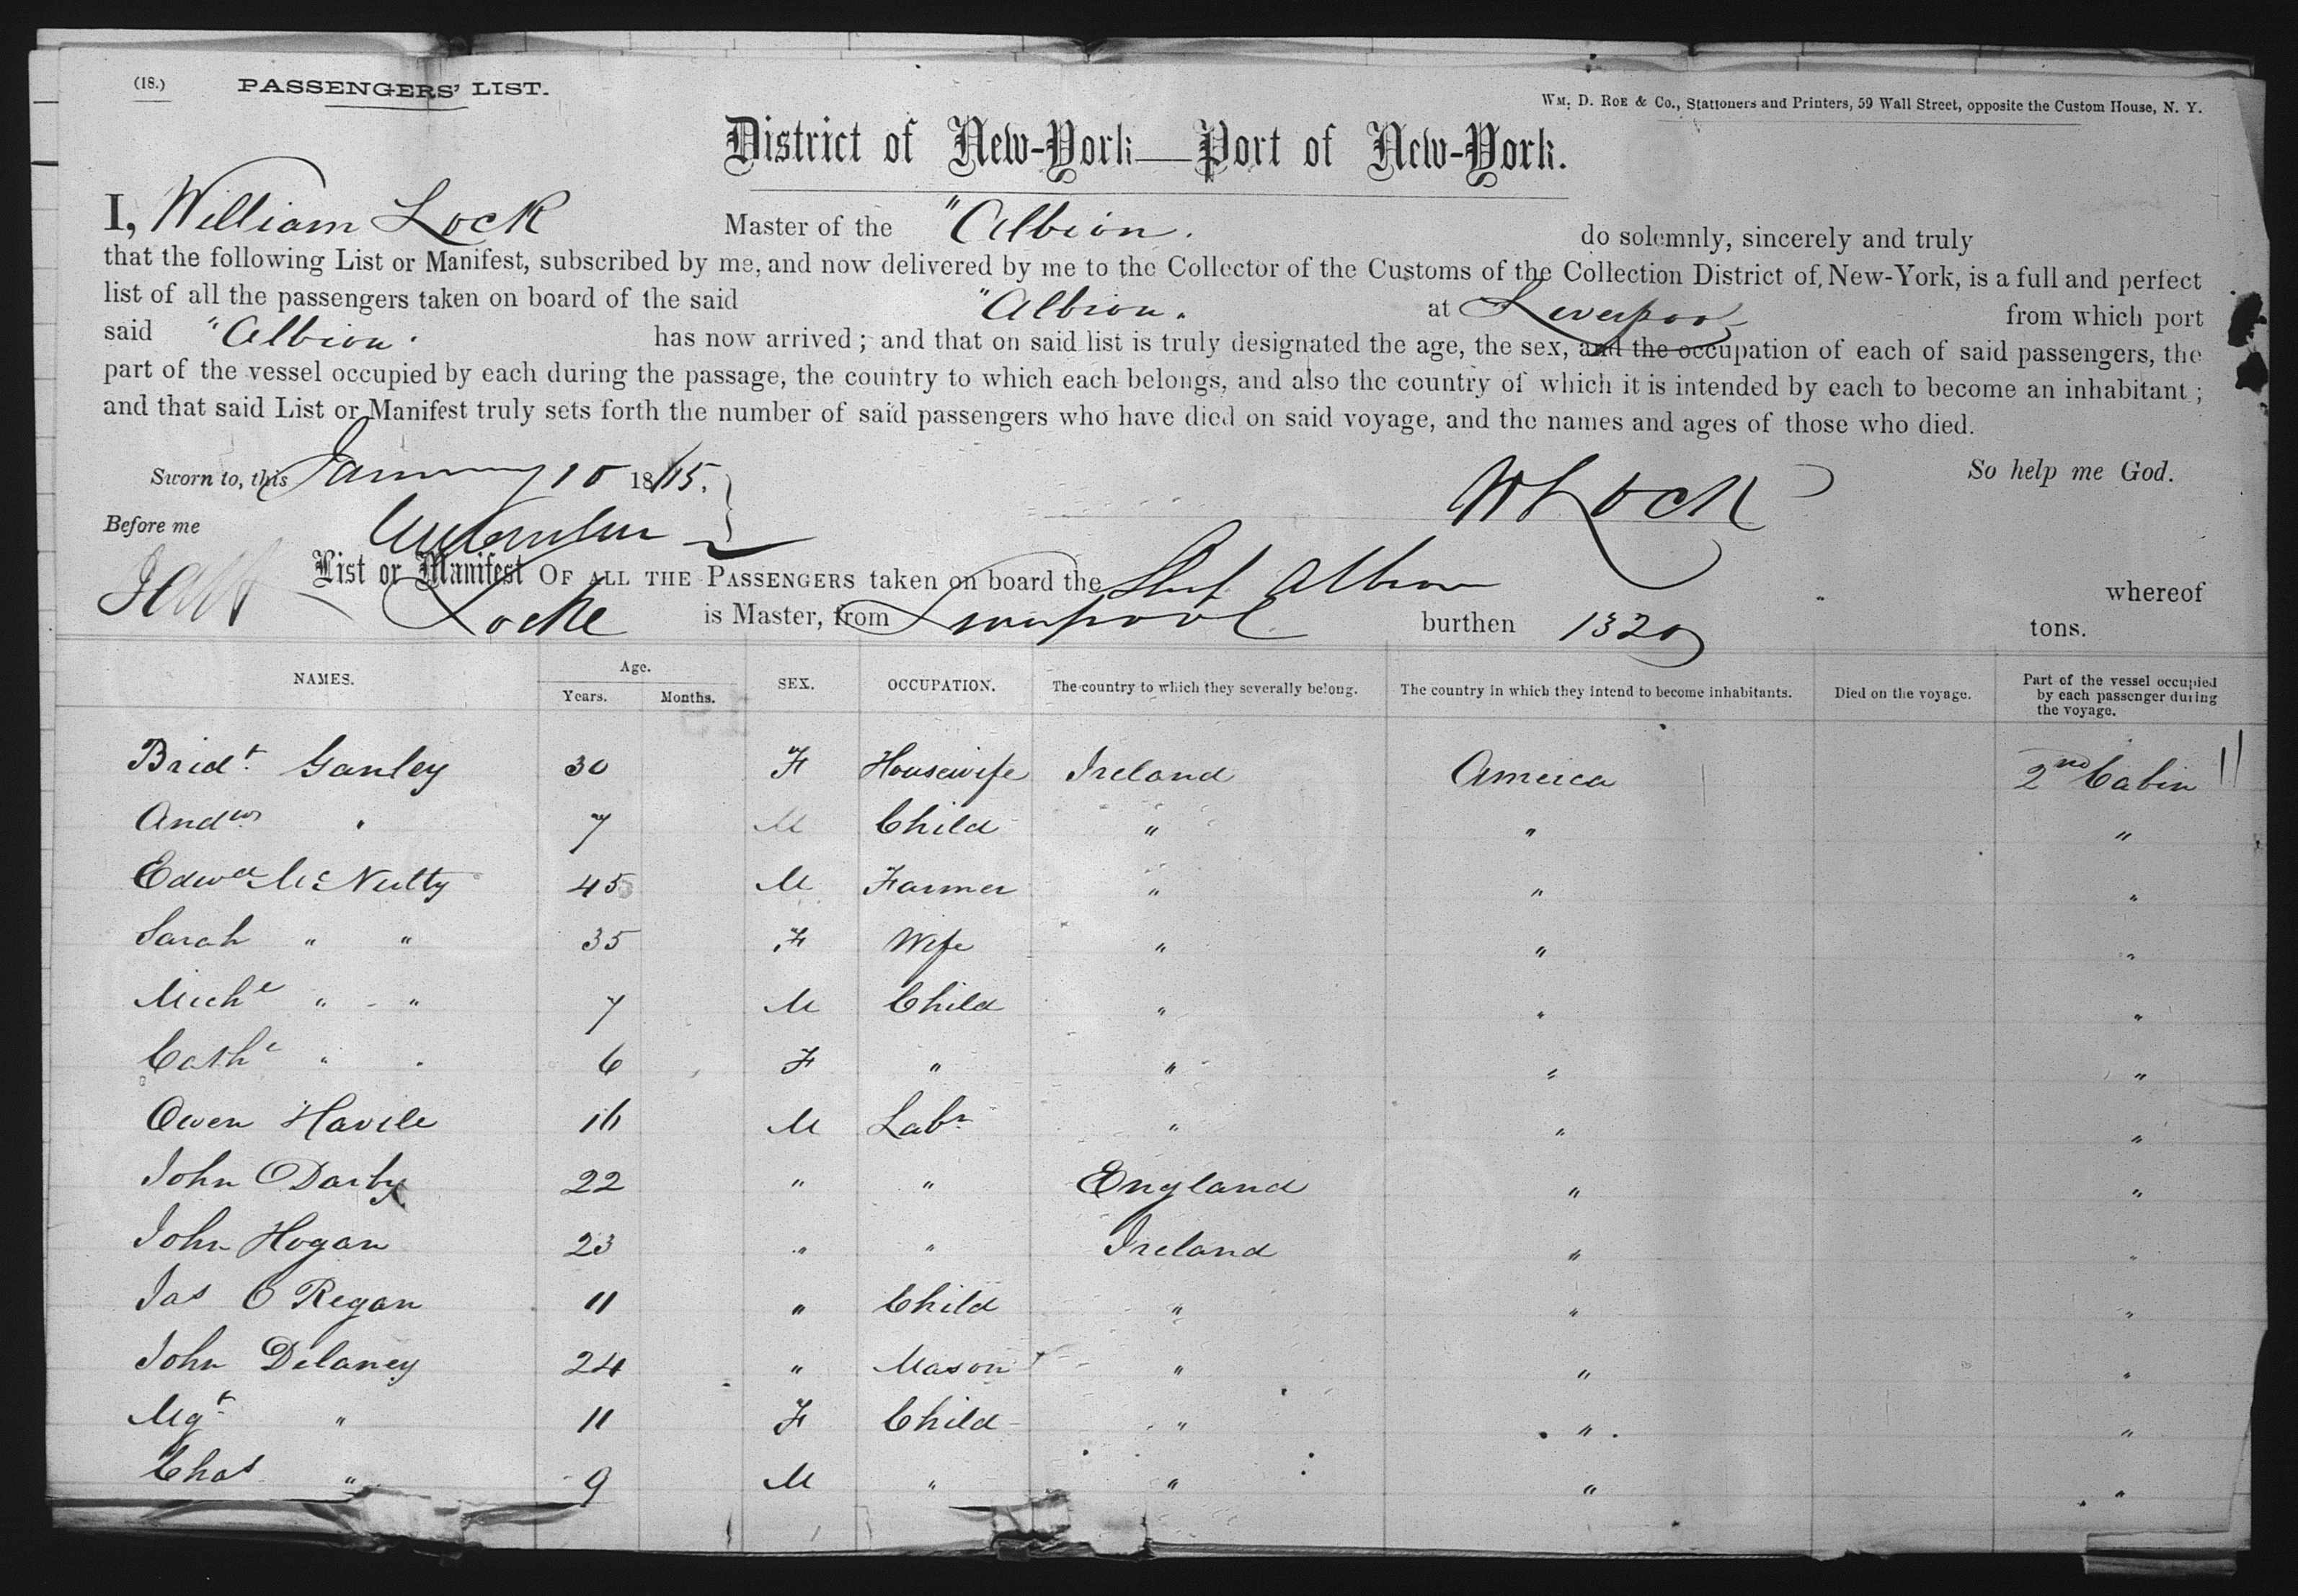 (18.) PASSENGERS' LIST.
WM. D. ROE & Co., Stationers and Printers, 59 Wall Street, opposite the Custom House, N. Y.
District of New-York—Port of New-York.
I, William Lock Master of the "Albion. do solemnly, sincerely and truly
that the following List or Manifest, subscribed by me, and now delivered by me to the Collector of the Customs of the Collection District of New-York, is a full and perfect
list of all the passengers taken on board of the said "Albion. at Liverpool from which port
said "Albion. has now arrived; and that on said list is truly designated the age, the sex, and the occupation of each of said passengers, the
part of the vessel occupied by each during the passage, the country to which each belongs, and also the country of which it is intended by each to become an inhabitant;
and that said List or Manifest truly sets forth the number of said passengers who have died on said voyage, and the names and ages of those who died.
Sworn to, this January 10 18 So help me God.
W Lock
Before me
List or Manifest OF ALL THE PASSENGERS taken on board the Ship Albion whereof
Locke is Master, from Liverpool burthen 1320 tons.
NAMES. Age. Years. Months. SEX. OCCUPATION. The country to which they severally belong. The country in which they intend to become inhabitants. Died on the voyage. Part of the vessel occupied by each passenger during the voyage.
Bridt. Ganley 30 F Housewife Ireland America 2nd Cabin
Andw " 7 M Child " " "
Edwd McNulty 45 M Farmer " " "
Sarah " " 35 F Wife " " "
Michl " " 7 M Child " " "
Cathe " " 6 F " " " "
Owen Havile 16 M Labr " " "
John O Darby 22 " " England " "
John Hogan 23 " " Ireland " "
Jas O Regan 11 " Child " " "
John Delaney 24 " Mason " " "
Mgt " 11 F Child " " "
Chas " 9 M " " " "